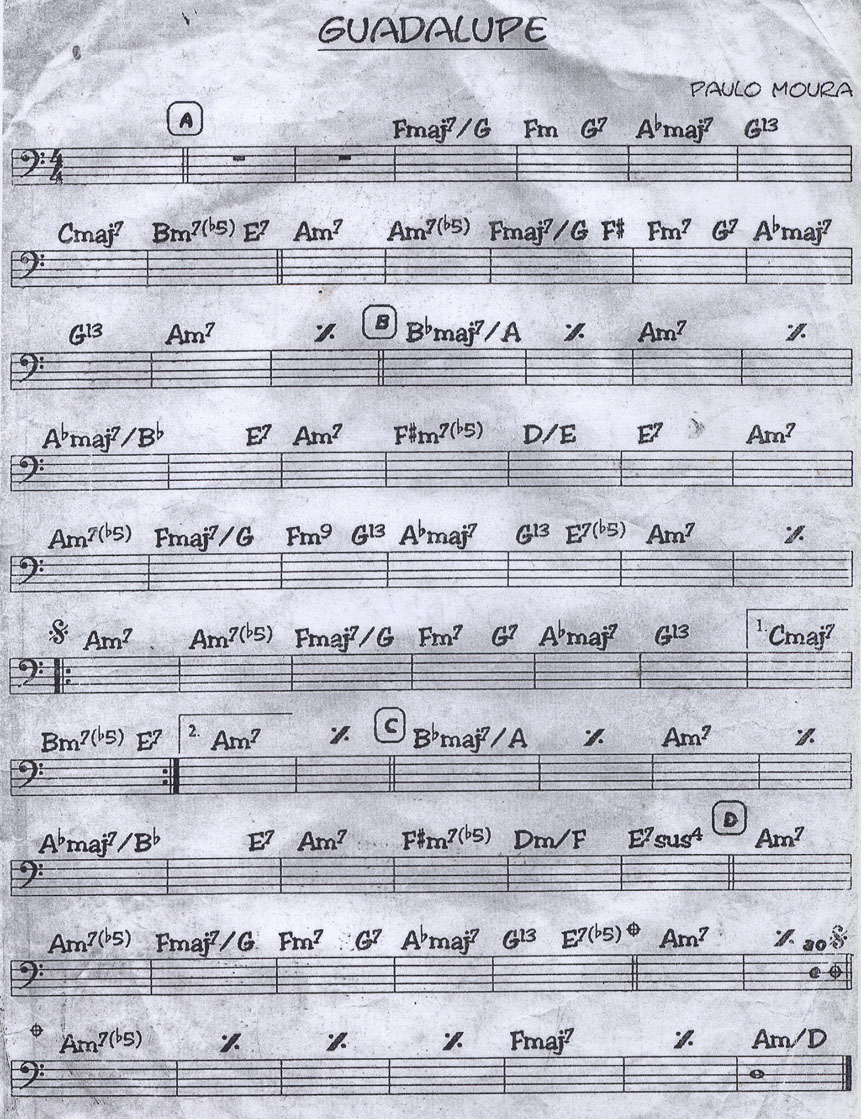 GUADALUPE
PAULO MOURA
A
4/4 Fmaj7/G Fm G7 A♭maj7 G13
Cmaj7 Bm7(♭5) E7 Am7 Am7(♭5) Fmaj7/G F# Fm7 G7 A♭maj7
G13 Am7 𝄎 B B♭maj7/A 𝄎 Am7 𝄎
A♭maj7/B♭ E7 Am7 F#m7(♭5) D/E E7 Am7
Am7(♭5) Fmaj7/G Fm9 G13 A♭maj7 G13 E7(♭5) Am7 𝄎
𝄋 Am7 Am7(♭5) Fmaj7/G Fm7 G7 A♭maj7 G13 1. Cmaj7
Bm7(♭5) E7 2. Am7 𝄎 C B♭maj7/A 𝄎 Am7 𝄎
A♭maj7/B♭ E7 Am7 F#m7(♭5) Dm/F E7sus4 D Am7
Am7(♭5) Fmaj7/G Fm7 G7 A♭maj7 G13 E7(♭5) 𝄌 Am7 𝄎 ao 𝄋
e 𝄌
𝄌 Am7(♭5) 𝄎 𝄎 𝄎 Fmaj7 𝄎 Am/D